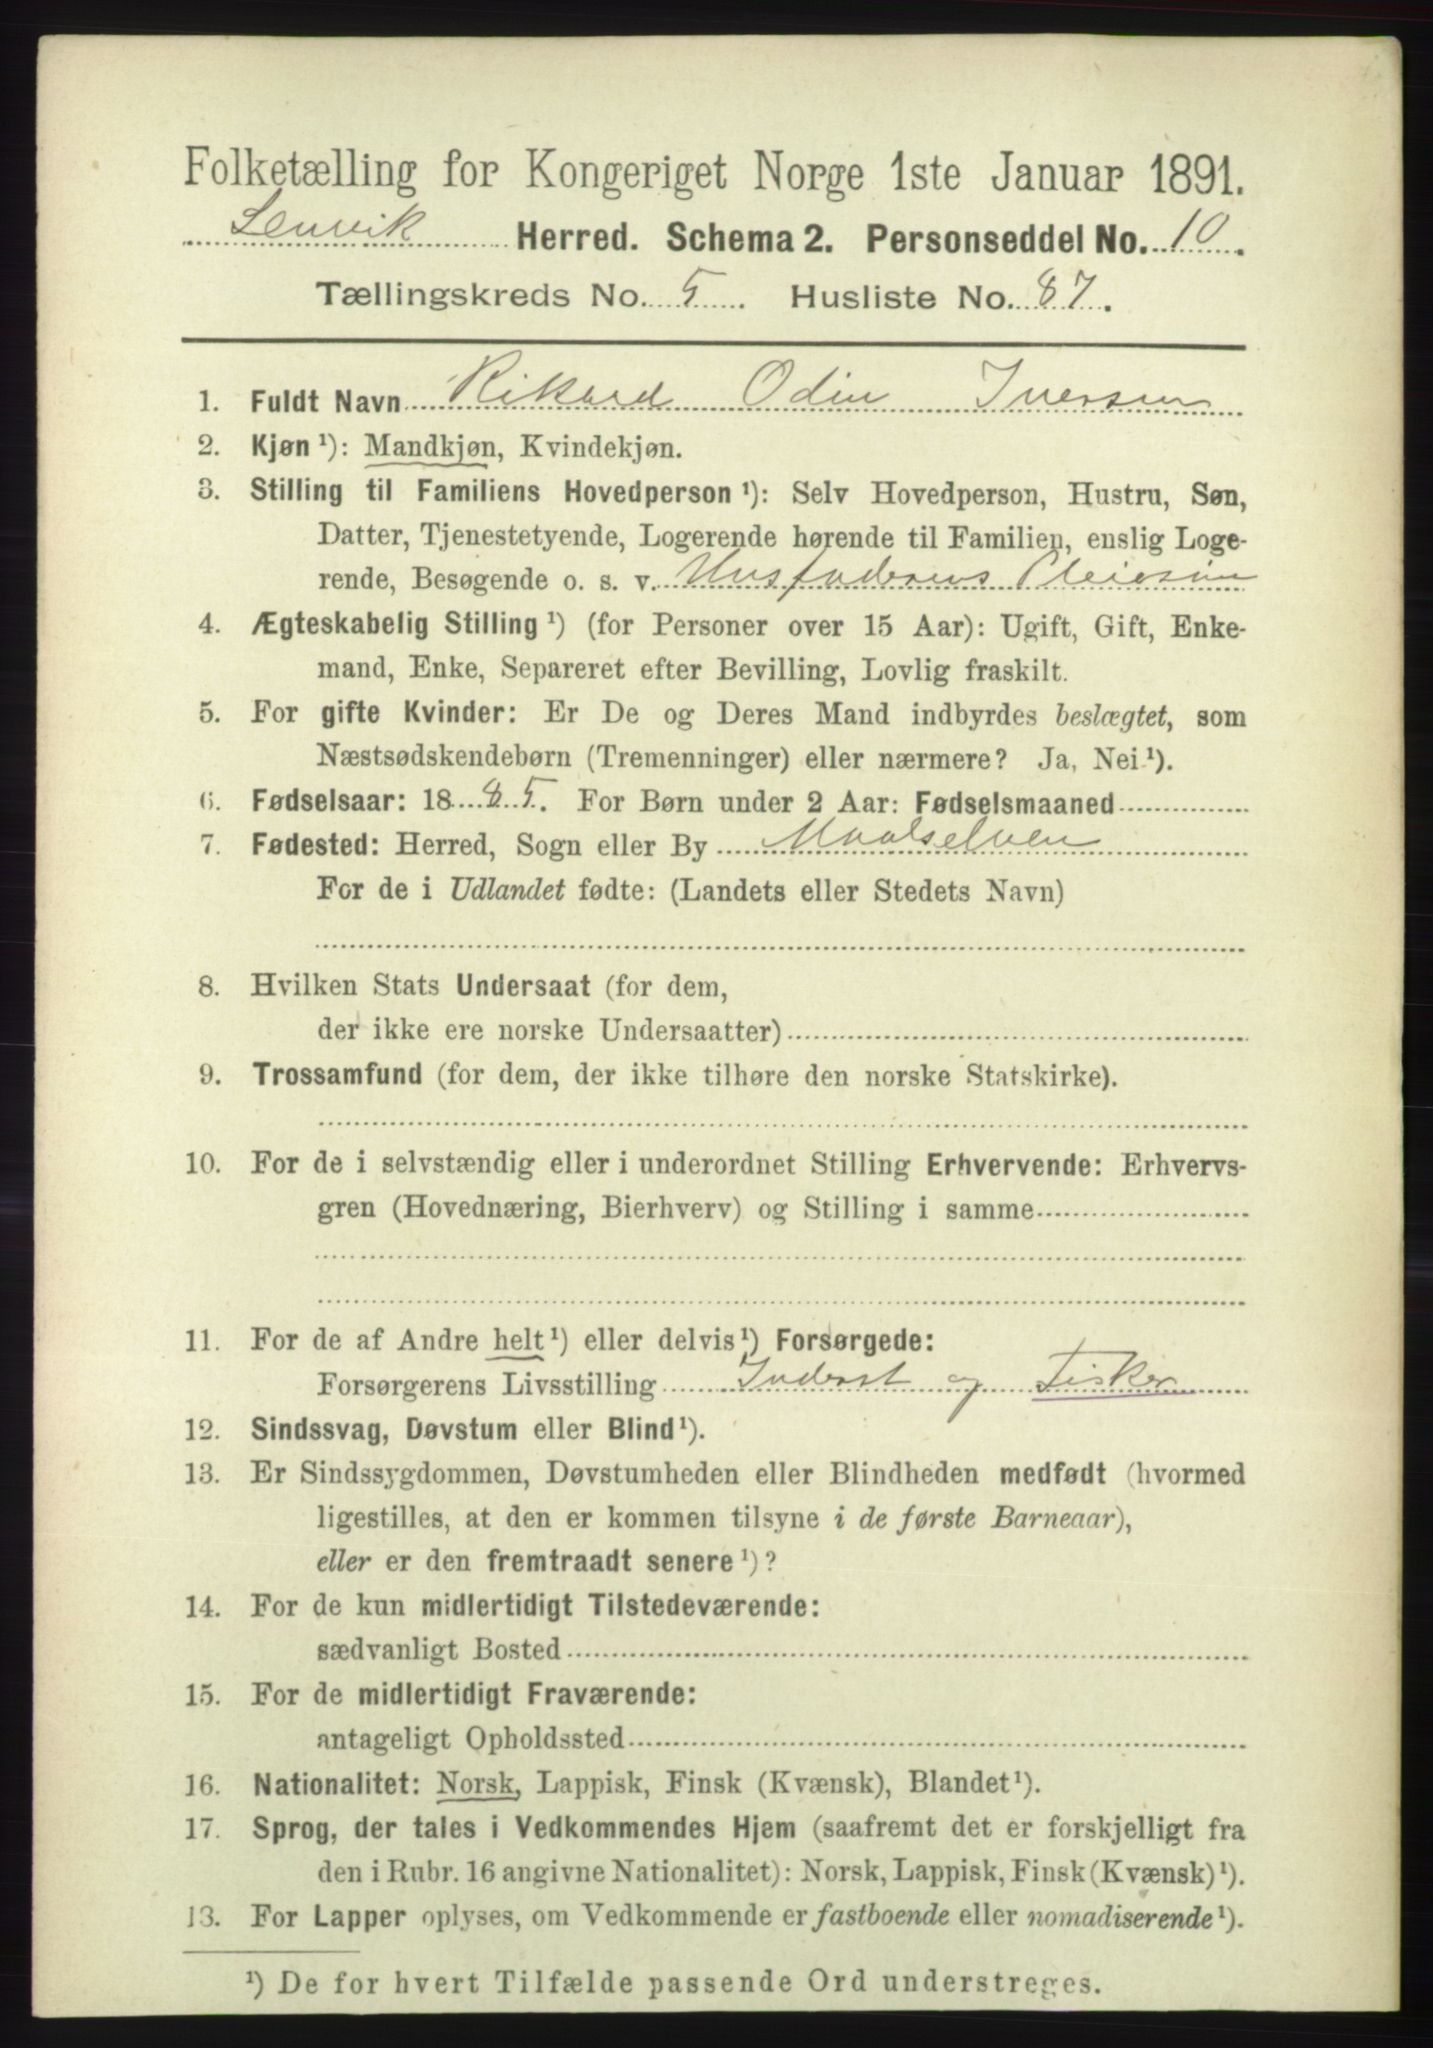 Folketælling for Kongeriget Norge 1ste Januar 1891.
Lenvik Herred. Schema 2. Personseddel No. 10.
Tællingskreds No. 5. Husliste No. 87.
1. Fuldt Navn Rikard Odin Iversen
2. Kjøn ¹): Mandkjøn, Kvindekjøn.
3. Stilling til Familiens Hovedperson ¹): Selv Hovedperson, Hustru, Søn,
Datter, Tjenestetyende, Logerende hørende til Familien, enslig Loge-
rende, Besøgende o. s. v. Husfaderens Pleiesøn
4. Ægteskabelig Stilling ¹) (for Personer over 15 Aar): Ugift, Gift, Enke-
mand, Enke, Separeret efter Bevilling, Lovlig fraskilt.
5. For gifte Kvinder: Er De og Deres Mand indbyrdes beslægtet, som
Næstsødskendebørn (Tremenninger) eller nærmere? Ja, Nei ¹).
6. Fødselsaar: 1885. For Børn under 2 Aar: Fødselsmaaned
7. Fødested: Herred, Sogn eller By Maalselven
For de i Udlandet fødte: (Landets eller Stedets Navn)
8. Hvilken Stats Undersaat (for dem,
der ikke ere norske Undersaatter)
9. Trossamfund (for dem, der ikke tilhøre den norske Statskirke).
10. For de i selvstændig eller i underordnet Stilling Erhvervende: Erhvervs-
gren (Hovednæring, Bierhverv) og Stilling i samme
11. For de af Andre helt ¹) eller delvis ¹) Forsørgede:
Forsørgerens Livsstilling Inderst og Fisker
12. Sindssvag, Døvstum eller Blind ¹).
13. Er Sindssygdommen, Døvstumheden eller Blindheden medfødt (hvormed
ligestilles, at den er kommen tilsyne i de første Barneaar),
eller er den fremtraadt senere ¹)?
14. For de kun midlertidigt Tilstedeværende:
sædvanligt Bosted
15. For de midlertidigt Fraværende:
antageligt Opholdssted
16. Nationalitet: Norsk, Lappisk, Finsk (Kvænsk), Blandet ¹).
17. Sprog, der tales i Vedkommendes Hjem (saafremt det er forskjelligt fra
den i Rubr. 16 angivne Nationalitet): Norsk, Lappisk, Finsk (Kvænsk) ¹).
13. For Lapper oplyses, om Vedkommende er fastboende eller nomadiserende ¹).
¹) De for hvert Tilfælde passende Ord understreges.